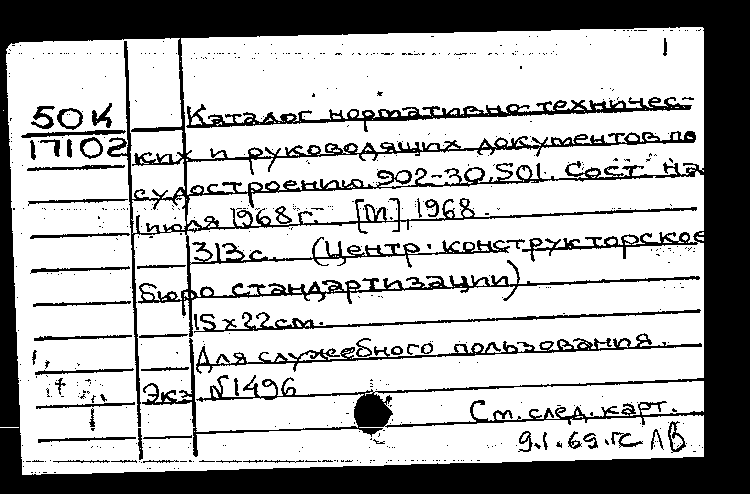 1
50К
17102
Каталог нормативно-техничес-
ких и руководящих документов по
судостроению. 902-30.501. Сост. на
1 июля 1968 г. [М.], 1968.
313 с. (Центр. конструкторское
бюро стандартизации).
15х22см.
Для служебного пользования.
Экз №1496
См. след. карт.
9.I.69.гс ЛВ